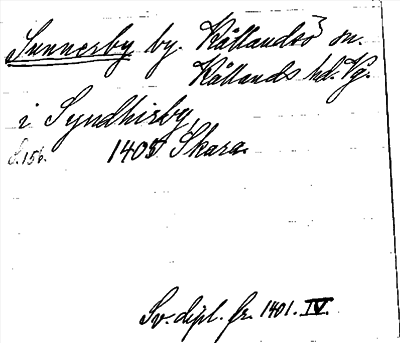 Sunnersby by. Kållandsö sn.
Kållands hd. Vg.
i Syndhirsby
S. 156. 1405 Skara.
Sv. dipl. fr. 1401. IV.